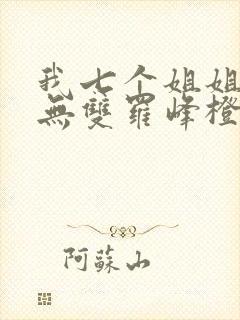 我七个姐姐
無雙羅峰橙
阿蘇山